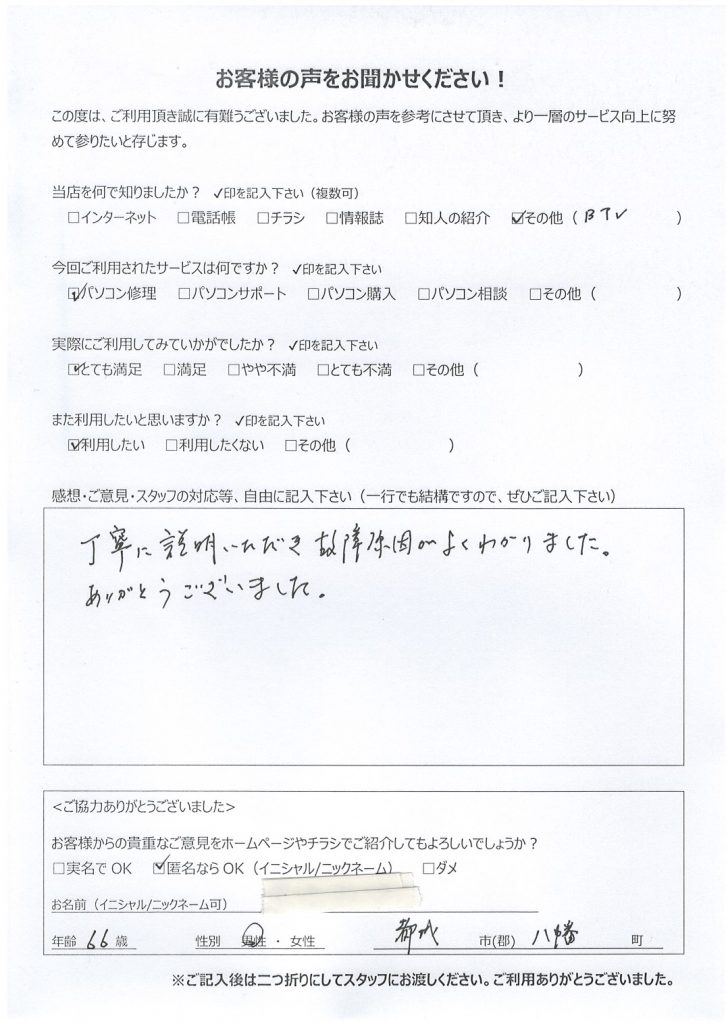 お客様の声をお聞かせください！
この度は、ご利用頂き誠に有難うございました。お客様の声を参考にさせて頂き、より一層のサービス向上に努
めて参りたいと存じます。
当店を何で知りましたか？ ✓印を記入下さい（複数可）
□インターネット □電話帳 □チラシ □情報誌 □知人の紹介 ☑その他（BTV）
今回ご利用されたサービスは何ですか？ ✓印を記入下さい
☑パソコン修理 □パソコンサポート □パソコン購入 □パソコン相談 □その他（ ）
実際にご利用してみていかがでしたか？ ✓印を記入下さい
☑とても満足 □満足 □やや不満 □とても不満 □その他（ ）
また利用したいと思いますか？ ✓印を記入下さい
☑利用したい □利用したくない □その他（ ）
感想・ご意見・スタッフの対応等、自由に記入下さい（一行でも結構ですので、ぜひご記入下さい）
丁寧に説明いただき故障原因がよくわかりました。
ありがとうございました。
<ご協力ありがとうございました>
お客様からの貴重なご意見をホームページやチラシでご紹介してもよろしいでしょうか？
□実名でOK ☑匿名ならOK（イニシャル/ニックネーム） □ダメ
お名前（イニシャル/ニックネーム可）
年齢 66 歳 性別 男性・女性 都城 市(郡) 八幡 町
※ご記入後は二つ折りにしてスタッフにお渡しください。ご利用ありがとうございました。